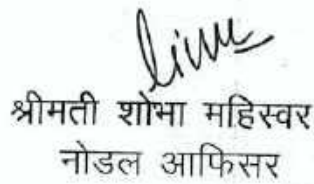 श्रीमती शोभा महिस्वर
नोडल आफिसर